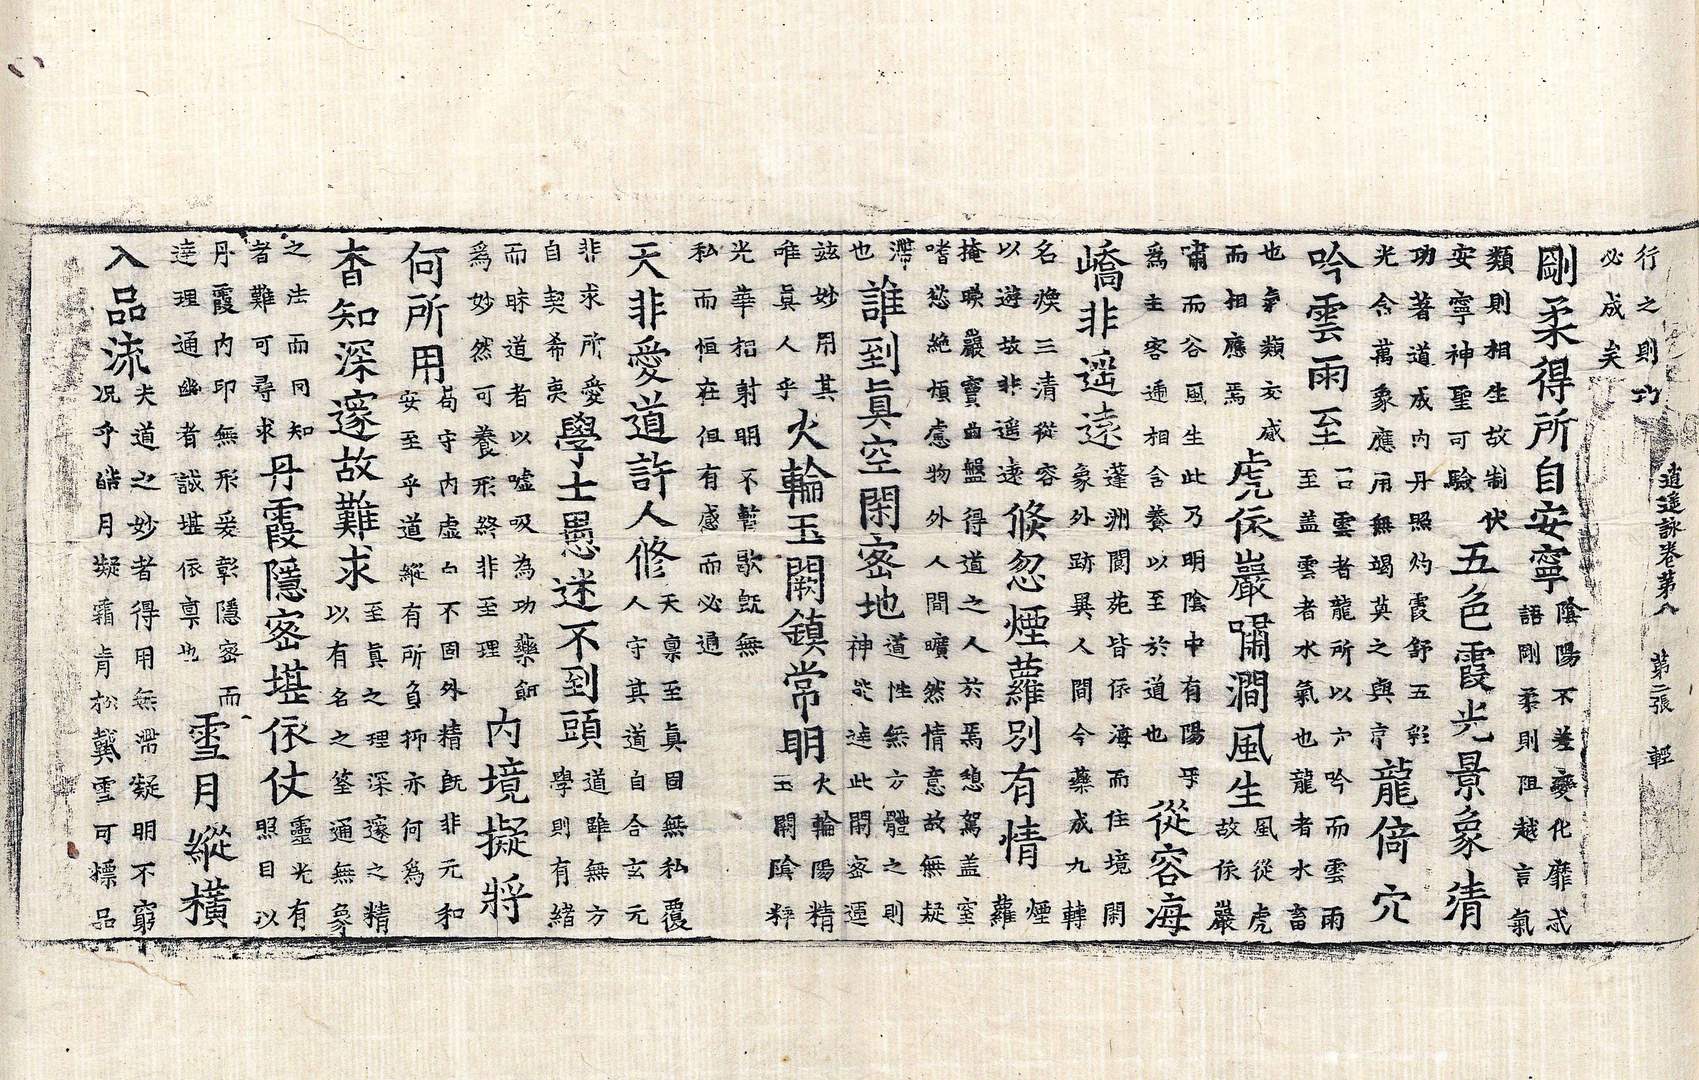 行之則功
必成矣
逍遥詠卷第八 第二張 輕
剛柔得所自安寧
陰陽不差變化靡忒
語剛柔則阻越言氣
類則相生故制伏
安寧神聖可驗
五色霞光景象清
功著道成內丹照灼霞舒五彩
光含萬象應用無竭英之與
龍倚穴
吟雲雨至
雲者龍所以穴吟而雲雨
至蓋雲者水氣也龍者水畜
也氣類交感
而相應焉
虎依巖嘯澗風生
風從虎
故依巖
嘯而谷風生此乃明陰中有陽乎
為主客遞相含養以至於道也
從容海
嶠非遥遠
蓬洲閬苑皆依海而住境閑
象外跡異人間今藥成九轉
名喚三清從容
以遊故非遥遠
倏忽煙蘿別有情
煙
蘿
掩映巖竇曲盤得道之人於焉憩駕蓋室
嗜慾絕煩慮物外人間曠然情意故無疑
滯
也
誰到眞空閑密地
道性無方體之則
神能達此閑密逕
茲妙用其
唯眞人乎
火輪玉闕鎮常明
火輪陽精
玉闕陰粹
光華招射明不暫歇既無
私而恒在但有感而必通
天非愛道許人修
天稟至眞固無私覆
人守其道自合玄元
非求所愛
自契希夷
學士愚迷不到頭
道雖無方
學則有緒
而昧道者以噓吸為功藥餌
為妙然可養形終非至理
內境擬將
何所用
苟守內虛而不固外精既非元和
安至乎道縱有所負抑亦何為
杳知深邃故難求
至眞之理深邃之精
以有名之筌通無象
之法而同知
者難可尋求
丹霞隱密堪依仗
靈光有
照目以
丹霞內印無形爰彰隱密而
達理通幽者誠堪依稟也
雪月縱橫
入品流
夫道之妙者得用無滯凝明不窮
況乎皓月凝霜肯松戴雪可標品